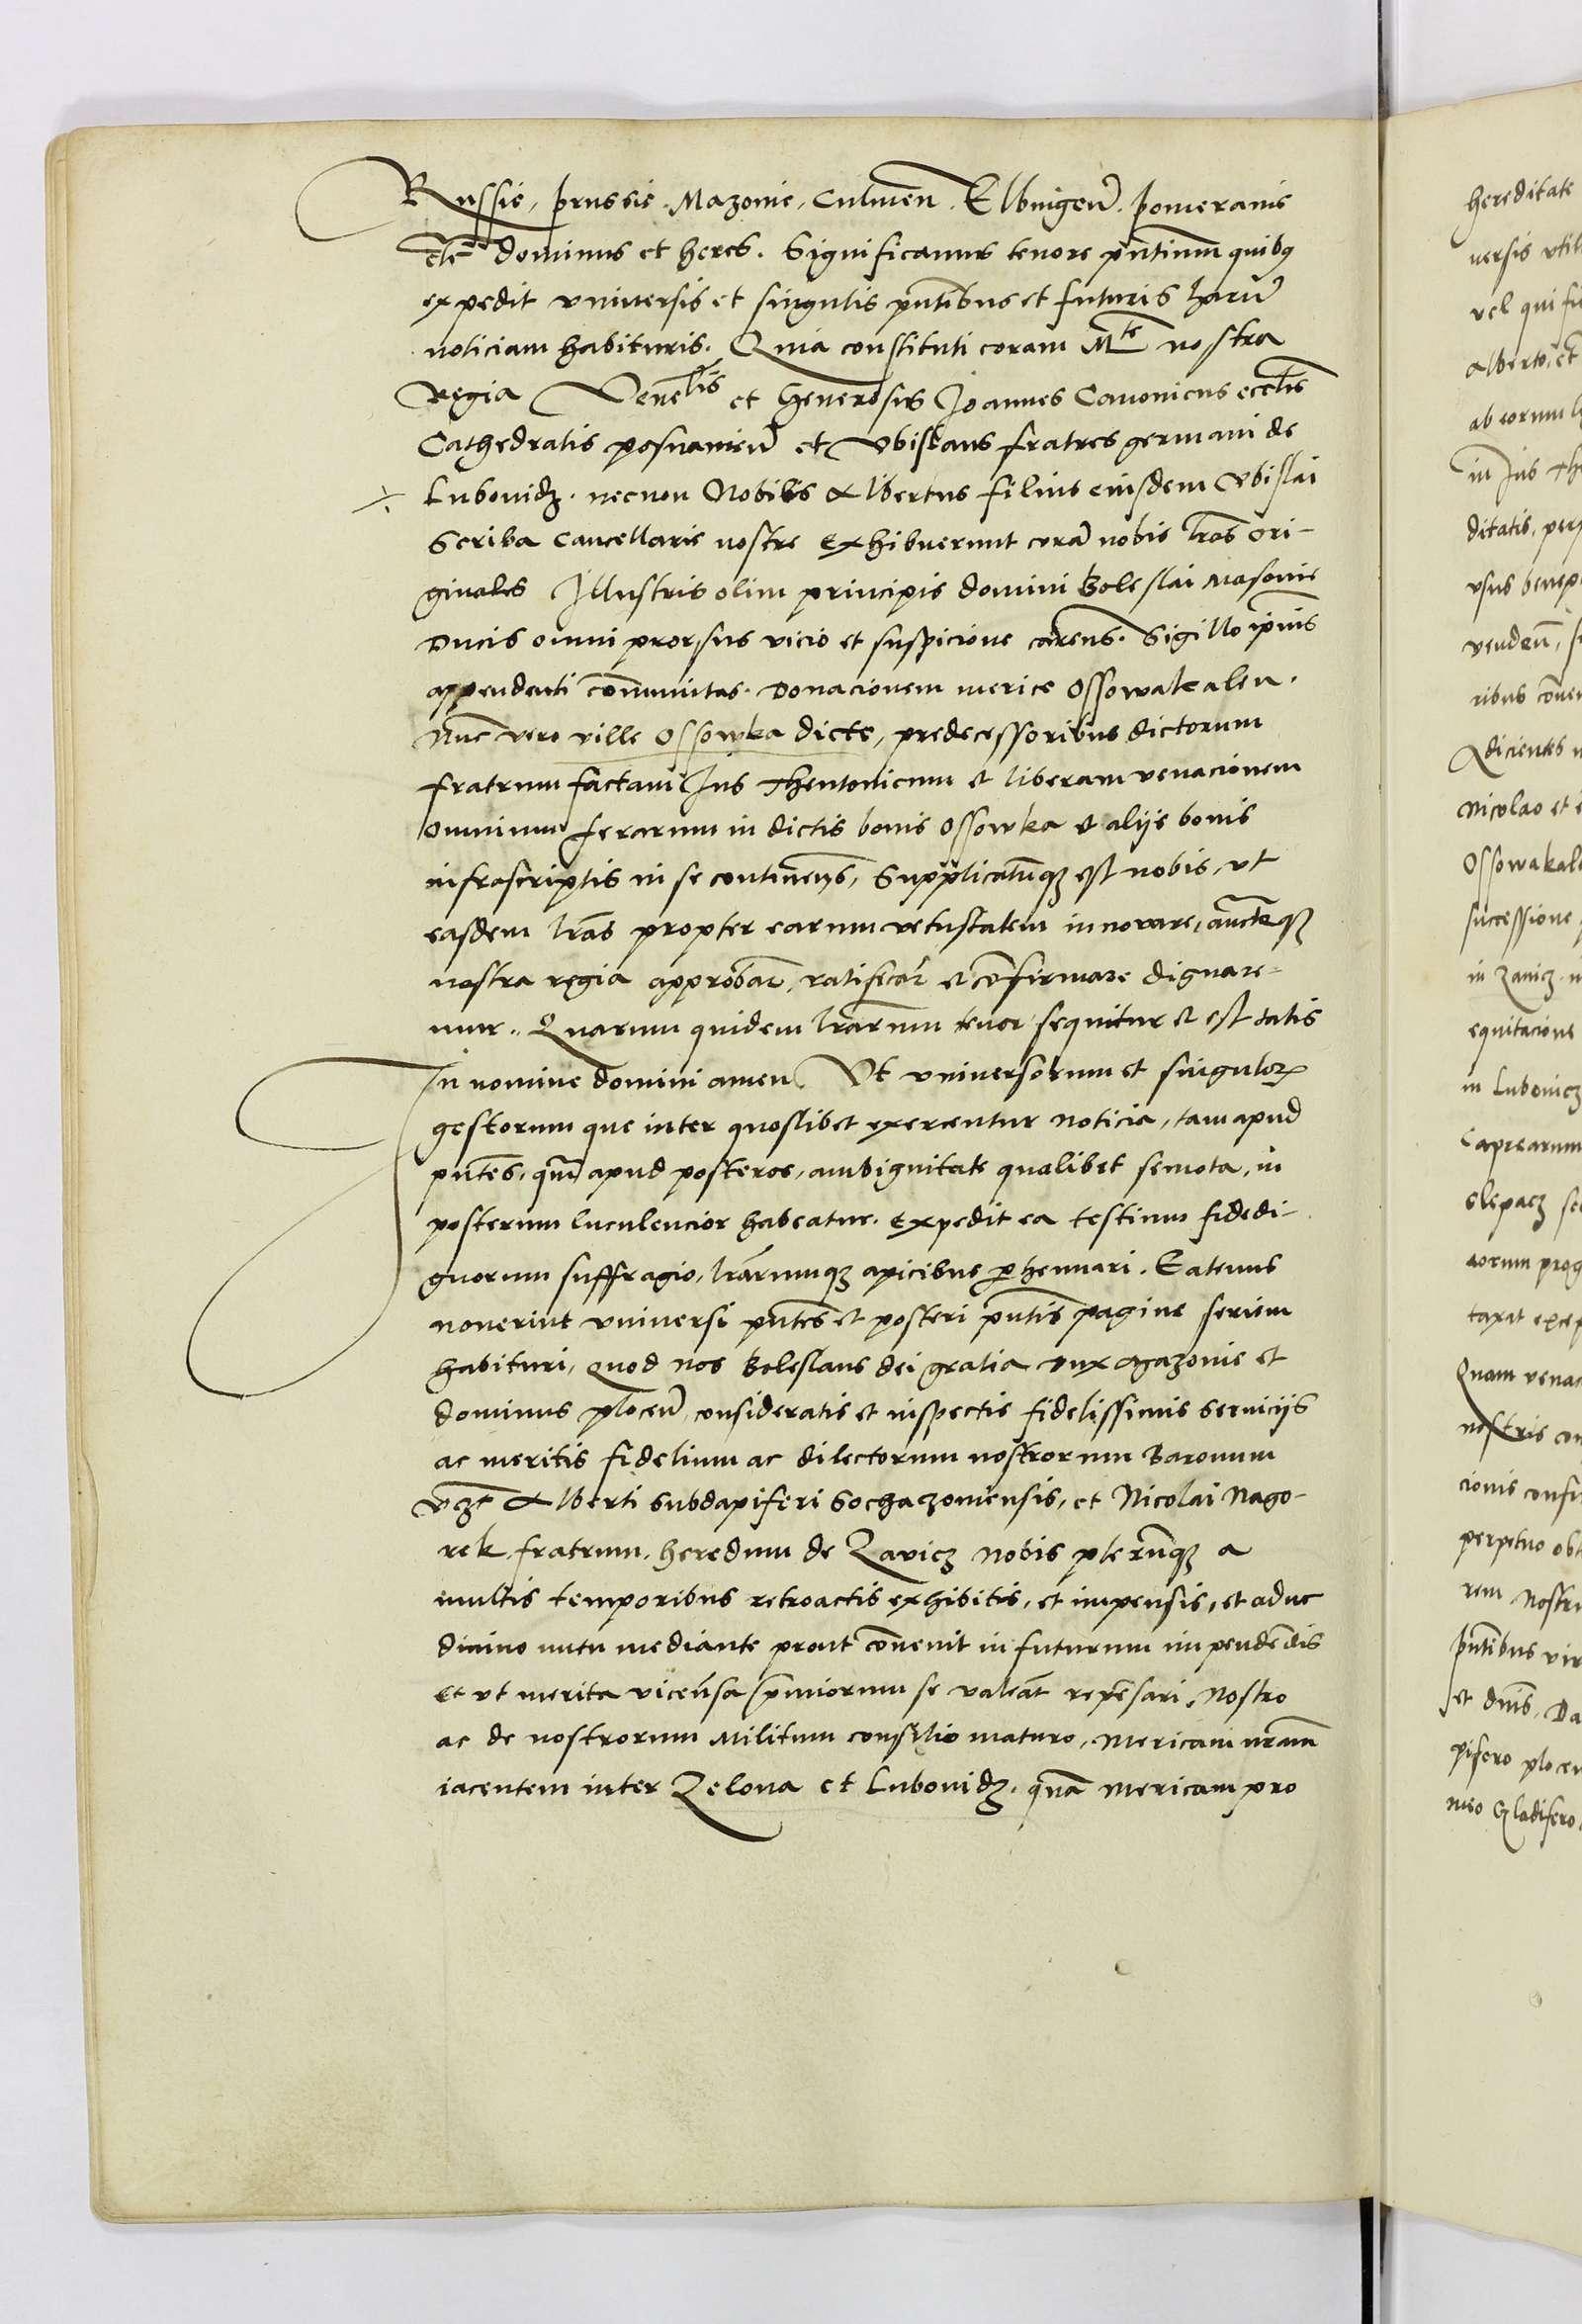 Russie, prussie. Mazonie, Culmen̄. Elbingen̄. pomeranie
etc̄ dominus et heres. Significamus tenore pn̄tium quibus
expedit vniuersis et singulis pn̄tibus et futuris harū
noticiam habituris. Quia constituti coram Mte nostra
Regia Venelis et Generosus Joannes Canonicus ecclīs
Cathedralis posnanien̄ et Vbislaus fratres germani de
Lubonidz. necnon Nobilis Albertus filius eiusdem Vbislai
Scriba Cancellarie nostre exhibuerunt corā nobis lr̄as Ori-
ginales Jllustris olim principis domini Boleslai Masouie
Ducis omni prorsus vicio et suspicione carens. Sigillo ip̄ius
appendenti com̄unitas. Donacionem merice Ossowakalen.
Nunc vero ville Ossowka dicte, predecessoribus dictorum
fratrum factam Jus Theutonicum et liberam venacionem
omnium ferarum in dictis bonis Ossowka et alijs bonis
infrascriptis in se continen̄s, Supplicatumqz est nobis, vt
easdem lr̄as propter earum vetustatem innovare, auc̄teqz
nostra regia approbar̄, ratificar̄ et cōfirmare dignare-
mur. Quarum quidem lr̄arum tenor sequitur et est talis
Jn nomine domini amen Vt vniuersorum et singulorꝫ
gestorum que inter quoslibet exercentur noticia, tam apud
pn̄tes, quā apud posteros, ambiguitate qualibet semota, in
posterum luculencior habeatur. Expedit ea testium fidedi-
gnorum suffragio, lr̄arumqz apicibus phennari. Eatenus
nouerint vniuersi pn̄tes et posteri pn̄tis pagine seriem
habituri, Quod nos Boleslaus dei gratia Dux Mazouie et
dominus plocen̄, consideratis et inspectis fidelissimis seruicijs
ac meritis fidelium ac dilectorum nostrorum Baronum
vzt Alberti Subdapiferi Sochazoniensis, et Nicolai Nago-
rek fratrum. heredum de Zavicz nobis plerūqz a
multis temporibus retroactis exhibitis, et impensis, et aduc
diuino nutu mediante prout cōuenit in futurum impendēdis
Et vt merita vicen̄sa p̄miorum se valeāt repēsari. Nostro
ac de nostrorum Militum consilio maturo, Mericam nr̄am
iacentem inter Zelona et Lubonidz. quā Mericam pro
hereditate
uersis vtil
vel qui fu
Alberto, et
ab eorum
in Jus Th
ditatis, per
vsus benep
venden̄,
ribus cōue
Adicientes
Nicolao et
Ossowakal
successione
in Zanicz.
equitacione
in Lubonicz
Caprearum
Slepacz se
eorum prog
taxat excep
Quam venac
nostris con
cionis confi
perpetuo ob
rem Nostr
pn̄tibus vir
et dn̄is. Da
pifero plocen
meo Gladifero